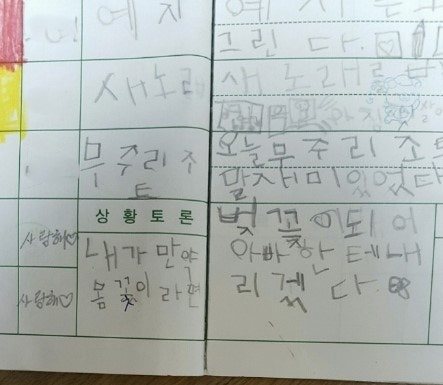 예지
그린다.
새노래
새노래를
무주리조
트
오늘무주리조
말재미있었다
상황토론
사랑해♡
내가만약
봄꽃이라면
사랑해♡
벚꽃이되어
아빠한테내
리겠다.